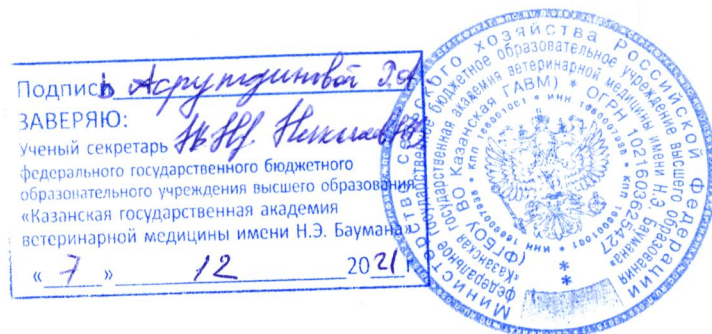 Подпись
ЗАВЕРЯЮ:
Ученый секретарь
федерального государственного бюджетного
образовательного учреждения высшего образования
«Казанская государственная академия
ветеринарной медицины имени Н.Э. Баумана»
« 7 » 12 2021 г
Министерство сельского хозяйства Российской Федерации
федеральное государственное бюджетное образовательное учреждение высшего образования
«Казанская государственная академия ветеринарной медицины имени Н.Э. Баумана»
(ФГБОУ ВО Казанская ГАВМ) * ОГРН